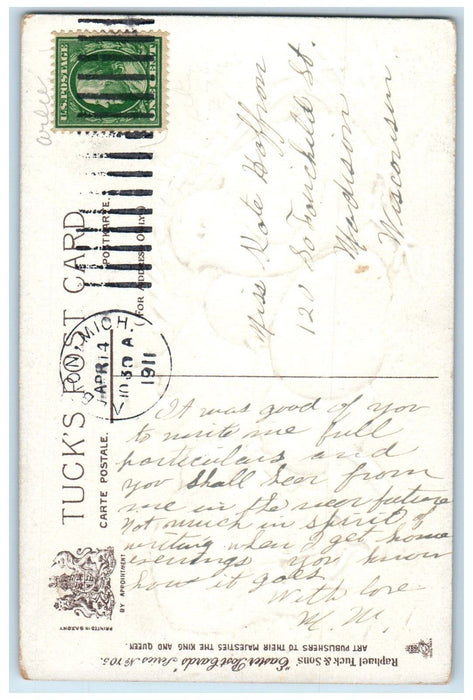 TUCK'S POST CARD
CARTE POSTALE.
POSTKARTE.
(FOR ADDRESS ONLY)
BY APPOINTMENT
PRINTED IN SAXONY
U.S. POSTAGE
ONE CENT
MICH.
APR 14
1030 A.
1911
Miss Kate Haffron
120 So Fairchild St.
Madison
Wisconsin.
It was good of you
to write me full
particulars and
you shall hear from
me in the near future
Not much in spirit of
writing when I get home
evenings you know
how it goes
With love
M. M.
Raphael Tuck & Sons' "Easter Post Cards" Series No 105.
ART PUBLISHERS TO THEIR MAJESTIES THE KING AND QUEEN.